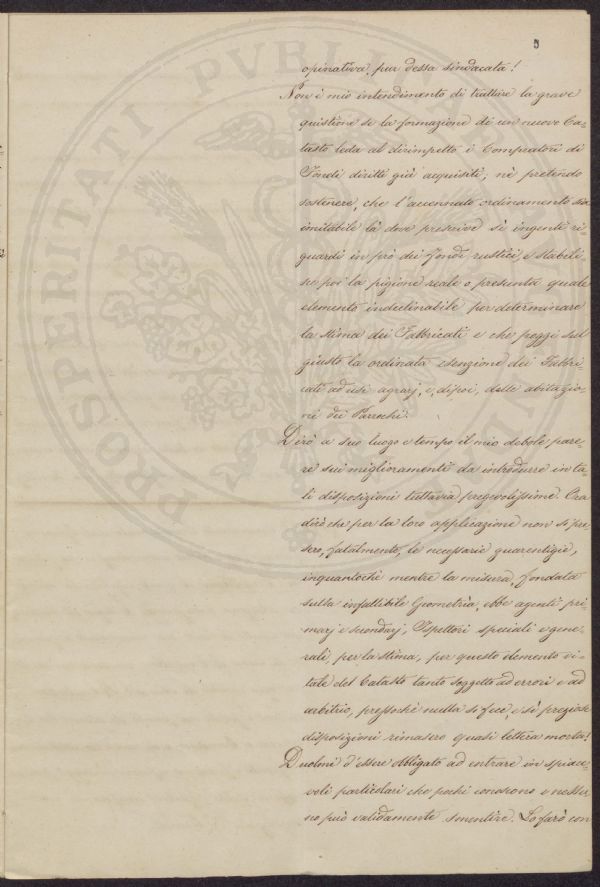 5
opinativa, pur dessa sindacata!
Non è mio intendimento di trattare la grave
quistione se la formazione di un nuovo Ca-
tasto leda al dirimpetto i Compratori di
Fondi diritti già acquisiti; nè pretendo
sostenere, che l'accennato ordinamento sia
imitabile là dove prescrive sì ingenti ri-
guardi in prò dei fondi rustici, e stabili-
se poi la pigione reale o presunta quale
elemento indeclinabile per determinare
la stima dei Fabbricati e che poggi sul
giusto la ordinata esenzione dei Fabbri-
cati ad usi agrarj, e, dipoi, delle abitazio-
ni dei Parrochi.
Dirò a suo luogo e tempo il mio debole pare-
re sui miglioramenti da introdurre in ta-
li disposizioni tuttavia pregevolissime. Ora
dirò che per la loro applicazione non si pre
sero, fatalmente, le necessarie guarentigie,
inquantochè mentre la misura, fondata
sulla infallibile Geometria, ebbe agenti pri-
marj e secondarj, Ispettori speciali e gene-
rali, per la stima, per questo elemento vi-
tale del Catasto tanto soggetto ad errori e ad
arbitrio, pressochè nulla si fece, e sì preziose
disposizioni rimasero quasi lettera morta!
Duolmi d'essere obbligato ad entrare in spiace-
voli particolari che pochi conoscono e nessu-
no può validamente smentire. Lo farò con
PROSPERITATI PVBLI